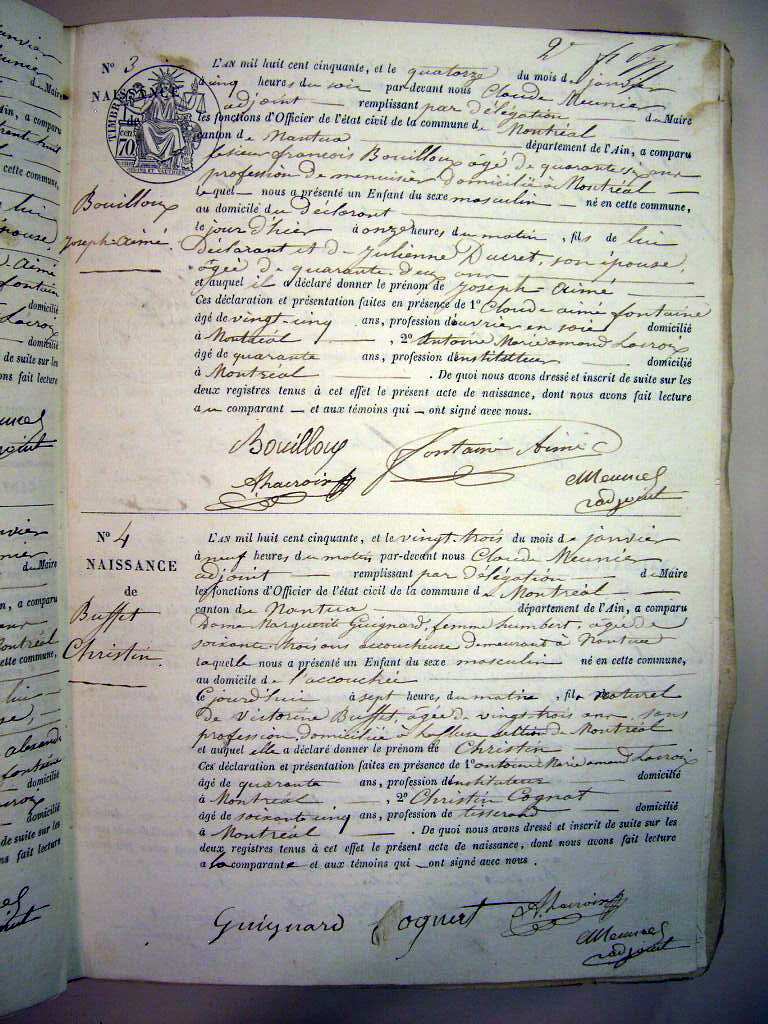 2e
N° 3
NAISSENCE
de
TIMBRE
cen
70
Bouilloux
Joseph-Aimé
L'AN mil huit cent cinquante, et le quatorze du mois de janvier
à cinq heures du soir par-devant nous Claude Meunier
adjoint remplissant par délégation du Maire
les fonctions d'Officier de l'état civil de la commune de Montréal
canton de Nantua département de l'Ain, a comparu
le sieur françois Bouilloux âgé de quarante six ans
profession de menuisier domicilié à Montréal
lequel nous a présenté un Enfant du sexe masculin né en cette commune,
au domicile du déclarant
le jour d'hier à onze heures du matin, fils de lui
déclarant et de Julienne Ducret, son épouse,
âgée de quarante-deux ans
et auquel il a déclaré donner le prénom de Joseph Aimé
Ces déclaration et présentation faites en présence de 1° Claude aimé fontaine
âgé de vingt-cinq ans, profession d'ouvrier en soie domicilié
à Montréal , 2° Antoine Marie amand Lacroix
âgé de quarante ans, profession d'instituteur domicilié
à Montréal . De quoi nous avons dressé et inscrit de suite sur les
deux registres tenus à cet effet le présent acte de naissance, dont nous avons fait lecture
au comparant et aux témoins qui ont signé avec nous.
Bouilloux fontaine Aimé
ALacroix Meunier
adjoint
N° 4
NAISSANCE
de
Buffet
Christin
L'AN mil huit cent cinquante, et le vingt-trois du mois de janvier
à neuf heures du matin par-devant nous Claude Meunier
adjoint remplissant par délégation du Maire
les fonctions d'Officier de l'état civil de la commune de Montréal
canton de Nantua département de l'Ain, a comparu
Dame Marguerite Guignard, femme humbert, âgée de
soixante trois ans accoucheuse demeurant à Nantua
laquelle nous a présenté un Enfant du sexe masculin né en cette commune,
au domicile de l'accouchée
ce jourd'hui à sept heures du matin, fils naturel
de Victorine Buffet, âgée de vingt trois ans, sans
profession, domiciliée à section de Montréal
et auquel elle a déclaré donner le prénom de Christin
Ces déclaration et présentation faites en présence de 1° antoine Marie amand Lacroix
âgé de quarante ans, profession d'instituteur domicilié
à Montréal , 2° Christin Cognat
âgé de soixante cinq ans, profession de tisserand domicilié
à Montréal . De quoi nous avons dressé et inscrit de suite sur les
deux registres tenus à cet effet le présent acte de naissance, dont nous avons fait lecture
a la comparante et aux témoins qui ont signé avec nous.
Guignard Cognat ALacroix
Meunier
adjoint